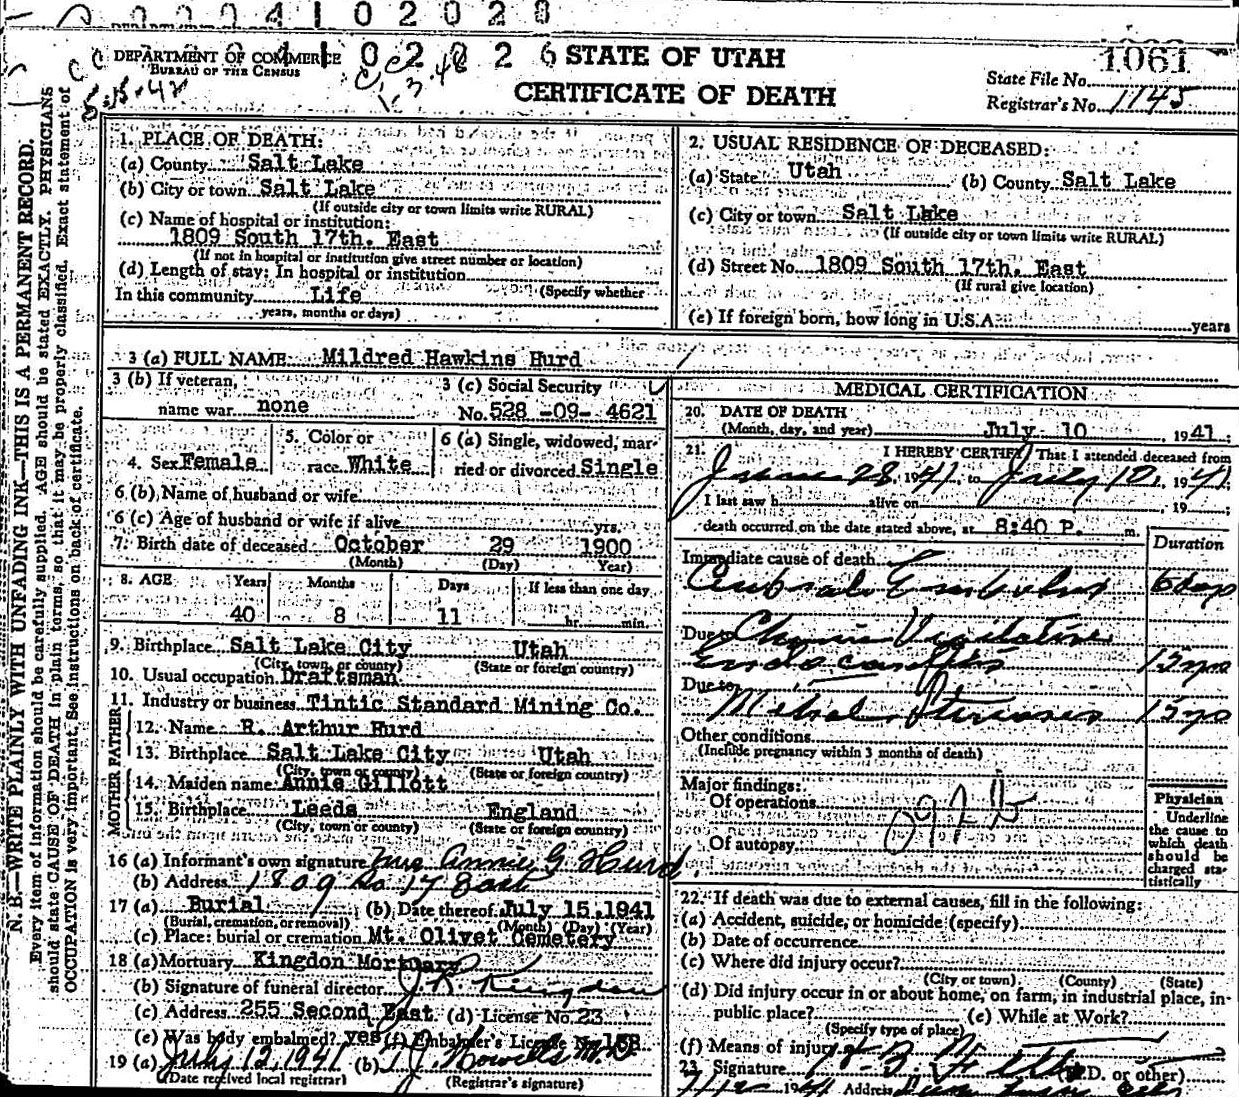 04102028
04102026
DEPARTMENT OF COMMERCE
BUREAU OF THE CENSUS
STATE OF UTAH
CERTIFICATE OF DEATH
1061
State File No.
Registrar's No. 1145
N. B.—WRITE PLAINLY WITH UNFADING INK—THIS IS A PERMANENT RECORD.
Every item of information should be carefully supplied. AGE should be stated EXACTLY. PHYSICIANS
should state CAUSE OF DEATH in plain terms, so that it may be properly classified. Exact statement of
OCCUPATION is very important. See instructions on back of certificate.
1. PLACE OF DEATH:
(a) County Salt Lake
(b) City or town Salt Lake
(If outside city or town limits write RURAL)
(c) Name of hospital or institution:
1809 South 17th. East
(If not in hospital or institution give street number or location)
(d) Length of stay: In hospital or institution
(Specify whether
In this community Life
years, months or days)
2. USUAL RESIDENCE OF DECEASED:
(a) State Utah (b) County Salt Lake
(c) City or town Salt Lake
(If outside city or town limits write RURAL)
(d) Street No. 1809 South 17th. East
(If rural give location)
(e) If foreign born, how long in U.S.A. years
3 (a) FULL NAME Mildred Hawkins Hurd
3 (b) If veteran,
name war none
3 (c) Social Security
No. 528 -09- 4621
4. Sex Female
5. Color or
race White
6 (a) Single, widowed, mar-
ried or divorced Single
6 (b) Name of husband or wife
6 (c) Age of husband or wife if alive yrs.
7. Birth date of deceased October 29 1900
(Month) (Day) Year)
8. AGE Years Months Days If less than one day
40 8 11 hr. min.
9. Birthplace Salt Lake City Utah
(City, town, or county) (State or foreign country)
10. Usual occupation Draftsman
11. Industry or business Tintic Standard Mining Co.
FATHER
12. Name R. Arthur Hurd
13. Birthplace Salt Lake City Utah
(City, town or county) (State or foreign country)
MOTHER
14. Maiden name Annie Gillott
15. Birthplace Leeds England
(City, town or county) (State or foreign country)
16 (a) Informant's own signature Mrs Annie G Hurd
(b) Address 1809 So 17 East
17 (a) Burial (b) Date thereof July 15, 1941
(Burial, cremation, or removal) (Month) (Day) (Year)
(c) Place: burial or cremation Mt. Olivet Cemetery
18 (a) Mortuary Kingdon Mortuary
(b) Signature of funeral director
(c) Address 255 Second East (d) License No. 23
(e) Was body embalmed? yes (f) Embalmer's License No.
19 (a) July 12, 1941 (b) Howells M D
(Date received local registrar) (Registrar's signature)
MEDICAL CERTIFICATION
20. DATE OF DEATH
(Month, day, and year) July 10, 1941;
21. I HEREBY CERTIFY, That I attended deceased from
June 28, 1941, to July 10, 1941;
I last saw h alive on , 19 ;
death occurred on the date stated above, at 8:40 P. m.
Duration
Immediate cause of death
6 days
Due to Chronic Vegitative
Endocarditis
Due to
Mitral Stenosis
Other conditions
(Include pregnancy within 3 months of death)
Major findings:
Of operations
Of autopsy
Physician
Underline
the cause to
which death
should be
charged sta-
tistically
22. If death was due to external causes, fill in the following:
(a) Accident, suicide, or homicide (specify)
(b) Date of occurrence
(c) Where did injury occur?
(City or town) (County) (State)
(d) Did injury occur in or about home, on farm, in industrial place, in-
public place? (e) While at Work?
(Specify type of place)
(f) Means of injury
23. Signature (M.D. or other)
1941 Address